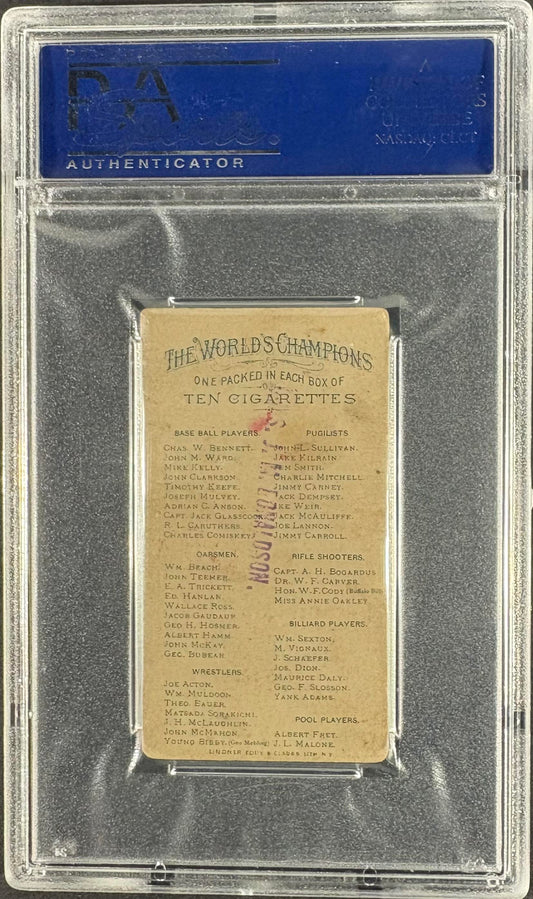 PSA
AUTHENTICATOR
A
DIVISION OF
COLLECTORS
UNIVERSE
NASDAQ: CLCT
THE WORLD'S CHAMPIONS
ONE PACKED IN EACH BOX OF
TEN CIGARETTES
BASE BALL PLAYERS.
CHAS. W. BENNETT.
JOHN M. WARD.
MIKE KELLY.
JOHN CLARKSON.
TIMOTHY KEEFE.
JOSEPH MULVEY.
ADRIAN C. ANSON.
CAPT. JACK GLASSCOCK
R. L. CARUTHERS.
CHARLES COMISKEY.
OARSMEN.
WM. BEACH.
JOHN TEEMER.
E. A. TRICKETT.
ED. HANLAN.
WALLACE ROSS.
JACOB GAUDAUR
GEO. H. HOSMER.
ALBERT HAMM.
JOHN MCKAY.
GEO. BUBEAR
WRESTLERS.
JOE ACTON.
WM. MULDOON.
THEO. BAUER.
MATSADA SORAKICHI.
J. H. MCLAUGHLIN.
JOHN MCMAHON.
YOUNG BIBBY. (Geo Mehling)
PUGILISTS
JOHN L. SULLIVAN.
JAKE KILRAIN.
JEM SMITH.
CHARLIE MITCHELL
JIMMY CARNEY.
JACK DEMPSEY.
IKE WEIR.
JACK MCAULIFFE.
JOE LANNON.
JIMMY CARROLL.
RIFLE SHOOTERS.
CAPT. A. H. BOGARDUS
DR. W. F. CARVER.
HON. W. F. CODY (Buffalo Bill)
MISS ANNIE OAKLEY
BILLIARD PLAYERS.
WM. SEXTON,
M. VIGNAUX.
J. SCHAEFER
JOS. DION.
MAURICE DALY.
GEO. F. SLOSSON.
YANK ADAMS.
POOL PLAYERS.
ALBERT FREY.
J. L. MALONE.
LINDNER, EDDY & CLAUSS, LITH. N.Y.